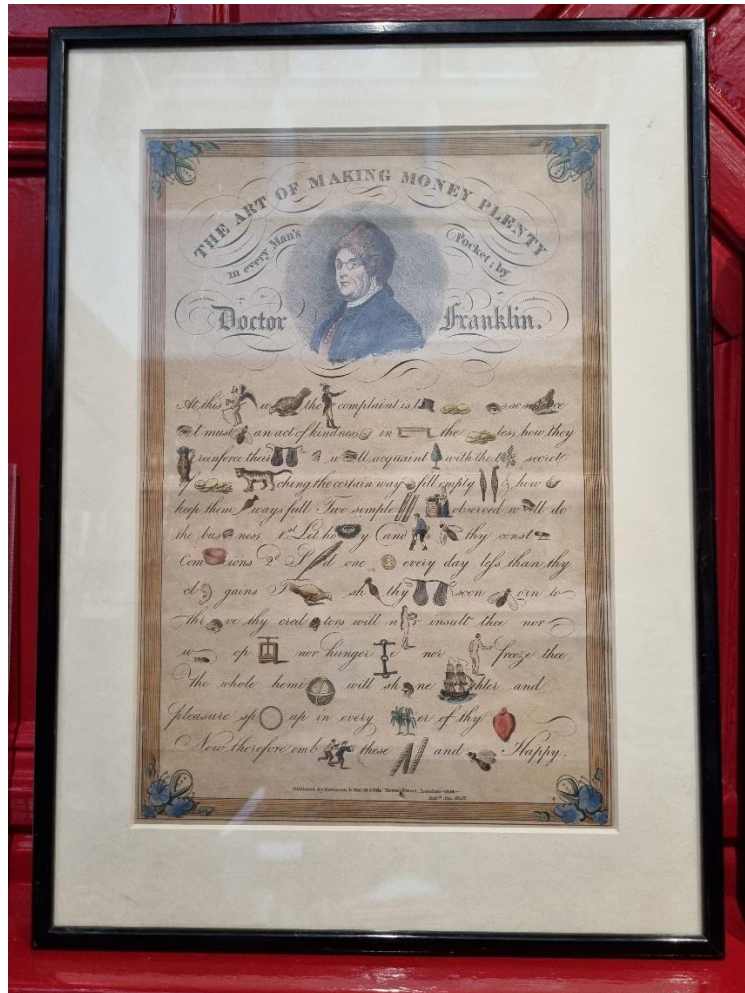 THE ART OF MAKING MONEY PLENTY
in every Man's Pocket; by
Doctor Franklin.
At this w the complaint is so
t must an act of kindness in the less, how they
reinforce their w ll acquaint with the secret
of ching the certain way fill empty & how
keep them ways full Two simple observed w ll do
the bus ness 1st Let ho y and thy const
Com ions 2d S d one every day less than thy
cl gains T sh thy soon gin to
thr ve thy cred tors will n r insult thee nor
w op nor hunger e nor freeze thee
the whole hemi will sh ne hter and
pleasure sp up in every er of thy
Now therefore emb these and Happy.